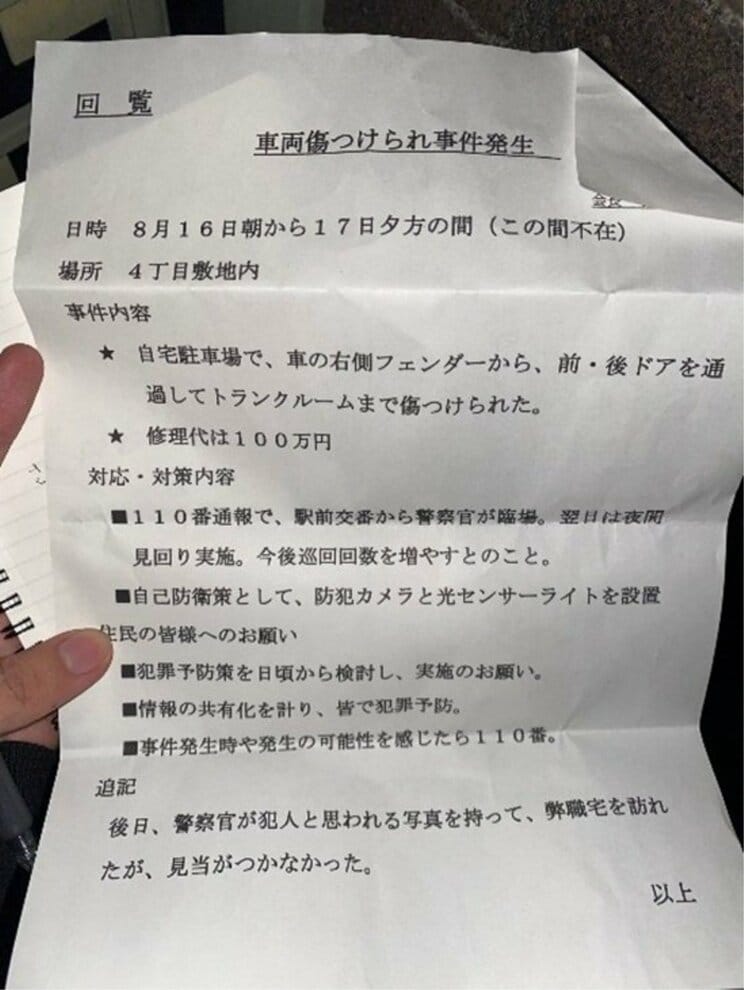 回　覧
車両傷つけられ事件発生
会長
日時　８月１６日朝から１７日夕方の間（この間不在）
場所　４丁目敷地内
事件内容
★　自宅駐車場で、車の右側フェンダーから、前・後ドアを通
過してトランクルームまで傷つけられた。
★　修理代は１００万円
対応・対策内容
■１１０番通報で、駅前交番から警察官が臨場。翌日は夜間
見回り実施。今後巡回回数を増やすとのこと。
■自己防衛策として、防犯カメラと光センサーライトを設置
住民の皆様へのお願い
■犯罪予防策を日頃から検討し、実施のお願い。
■情報の共有化を計り、皆で犯罪予防。
■事件発生時や発生の可能性を感じたら１１０番。
追記
後日、警察官が犯人と思われる写真を持って、弊職宅を訪れ
たが、見当がつかなかった。
以上